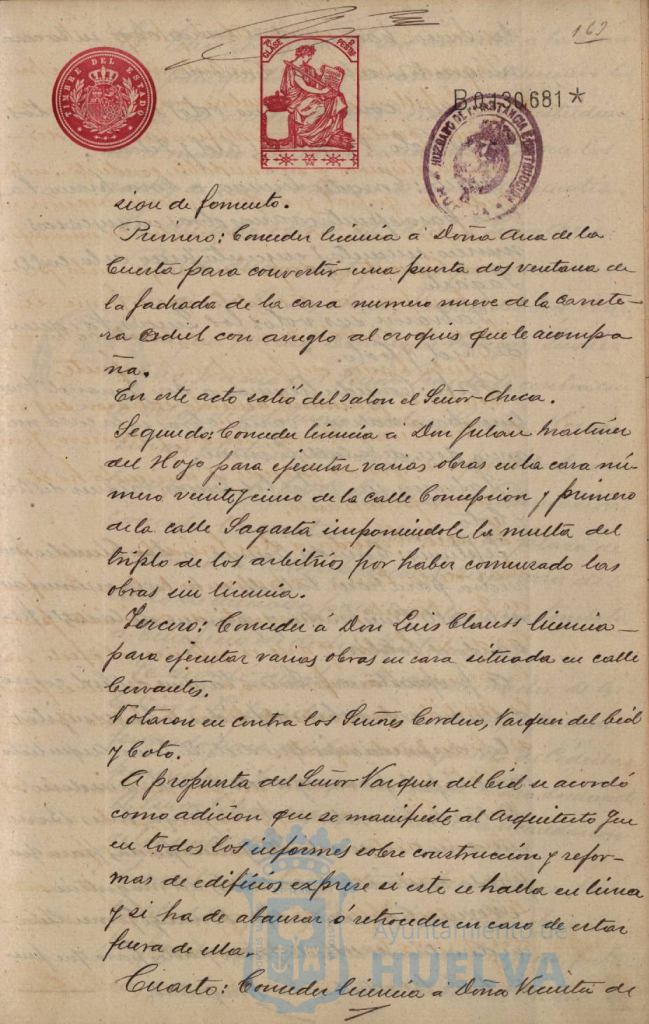 169
TIMBRE DEL ESTADO
CLASE
PESETA
B.0.130.681*
JUZGADO DE INSTANCIA É INSTRUCCION
HUELVA
sion de fomento.
Primero: Conceder licencia á Doña Ana de la
Cuesta para convertir una puerta dos ventana de
la fachada de la casa numero nueve de la Carrete-
ra Odiel con arreglo al croquis que le acompa
ña.
En este acto salió del salon el Señor Checa.
Segundo: Conceder licencia á Don Julián Martinez
del Hoyo para ejecutar varias obras en la casa nú-
mero veinte y cinco de la calle Concepcion y primero
de la calle Sagasta imponiendole la multa del
triplo de los arbitrios por haber comenzado las
obras sin licencia.
Tercero: Conceder á Don Luis Clauss licencia
para ejecutar varias obras en casa situada en calle
Cervantes.
Votaron en contra los Señores Cordero, Vazquez del Cid
y Coto.
A propuesta del Señor Vazquez del Cid se acordó
como adicion que se manifieste al Arquitecto que
en todos los informes sobre construcción y refor-
mas de edificios exprese si este se halla en linea
y si ha de abanzar ó retroceder en caso de estar
fuera de ella.
Ayuntamiento de
HUELVA
Cuarto: Conceder licencia á Doña Vicenta de